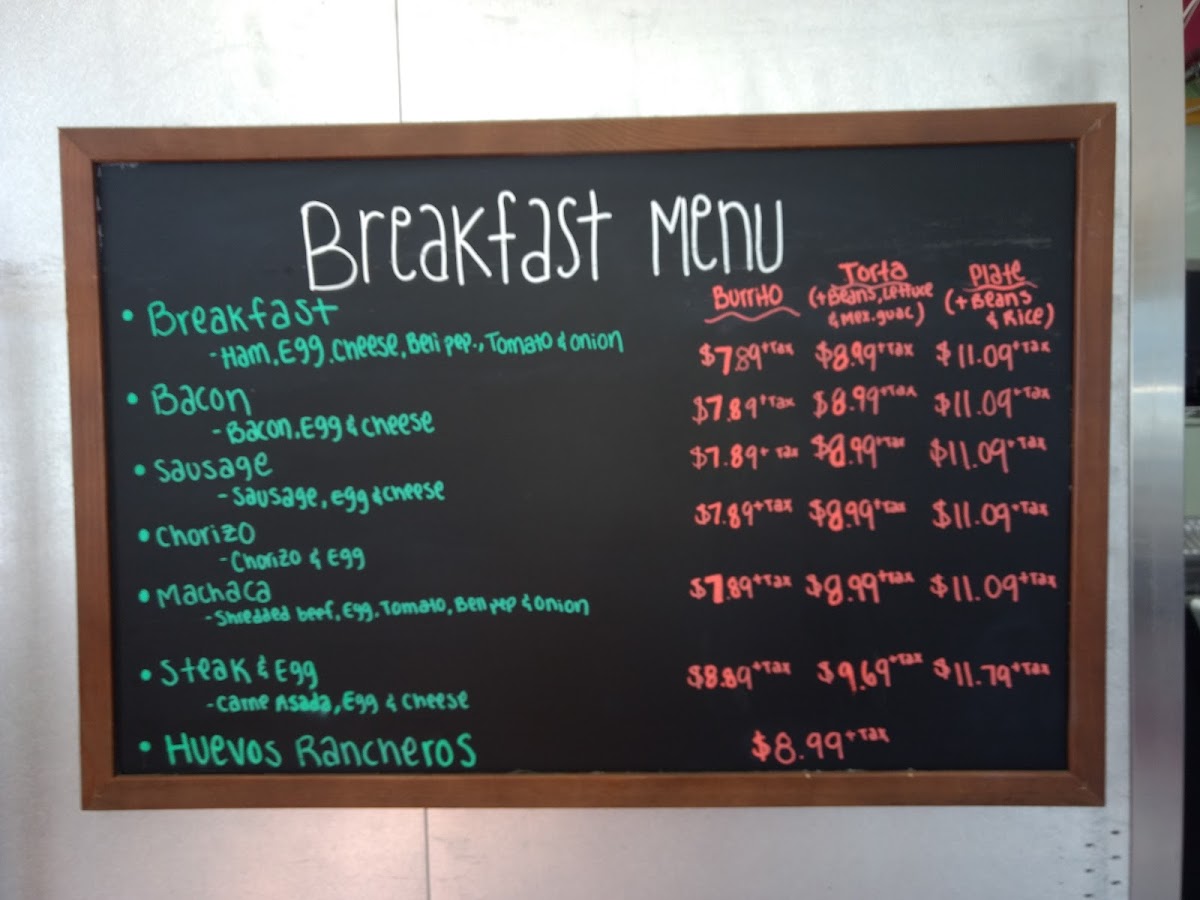 Breakfast Menu
Burrito Torta Plate
(+Beans, Lettuce & Mex. guac) (+Beans & Rice)
• Breakfast
-Ham, Egg, Cheese, Bell pep., Tomato & onion $7.89+Tax $8.99+Tax $11.09+Tax
• Bacon
-Bacon, Egg & cheese $7.89+Tax $8.99+Tax $11.09+Tax
• Sausage $7.89+Tax $8.99+Tax $11.09+Tax
-Sausage, egg & cheese
• Chorizo $7.89+Tax $8.99+Tax $11.09+Tax
-Chorizo & Egg
• Machaca $7.89+Tax $8.99+Tax $11.09+Tax
-Shredded beef, Egg, Tomato, Bell pep & Onion
• Steak & Egg $8.89+Tax $9.69+Tax $11.79+Tax
-Carne Asada, Egg & Cheese
• Huevos Rancheros $8.99+Tax